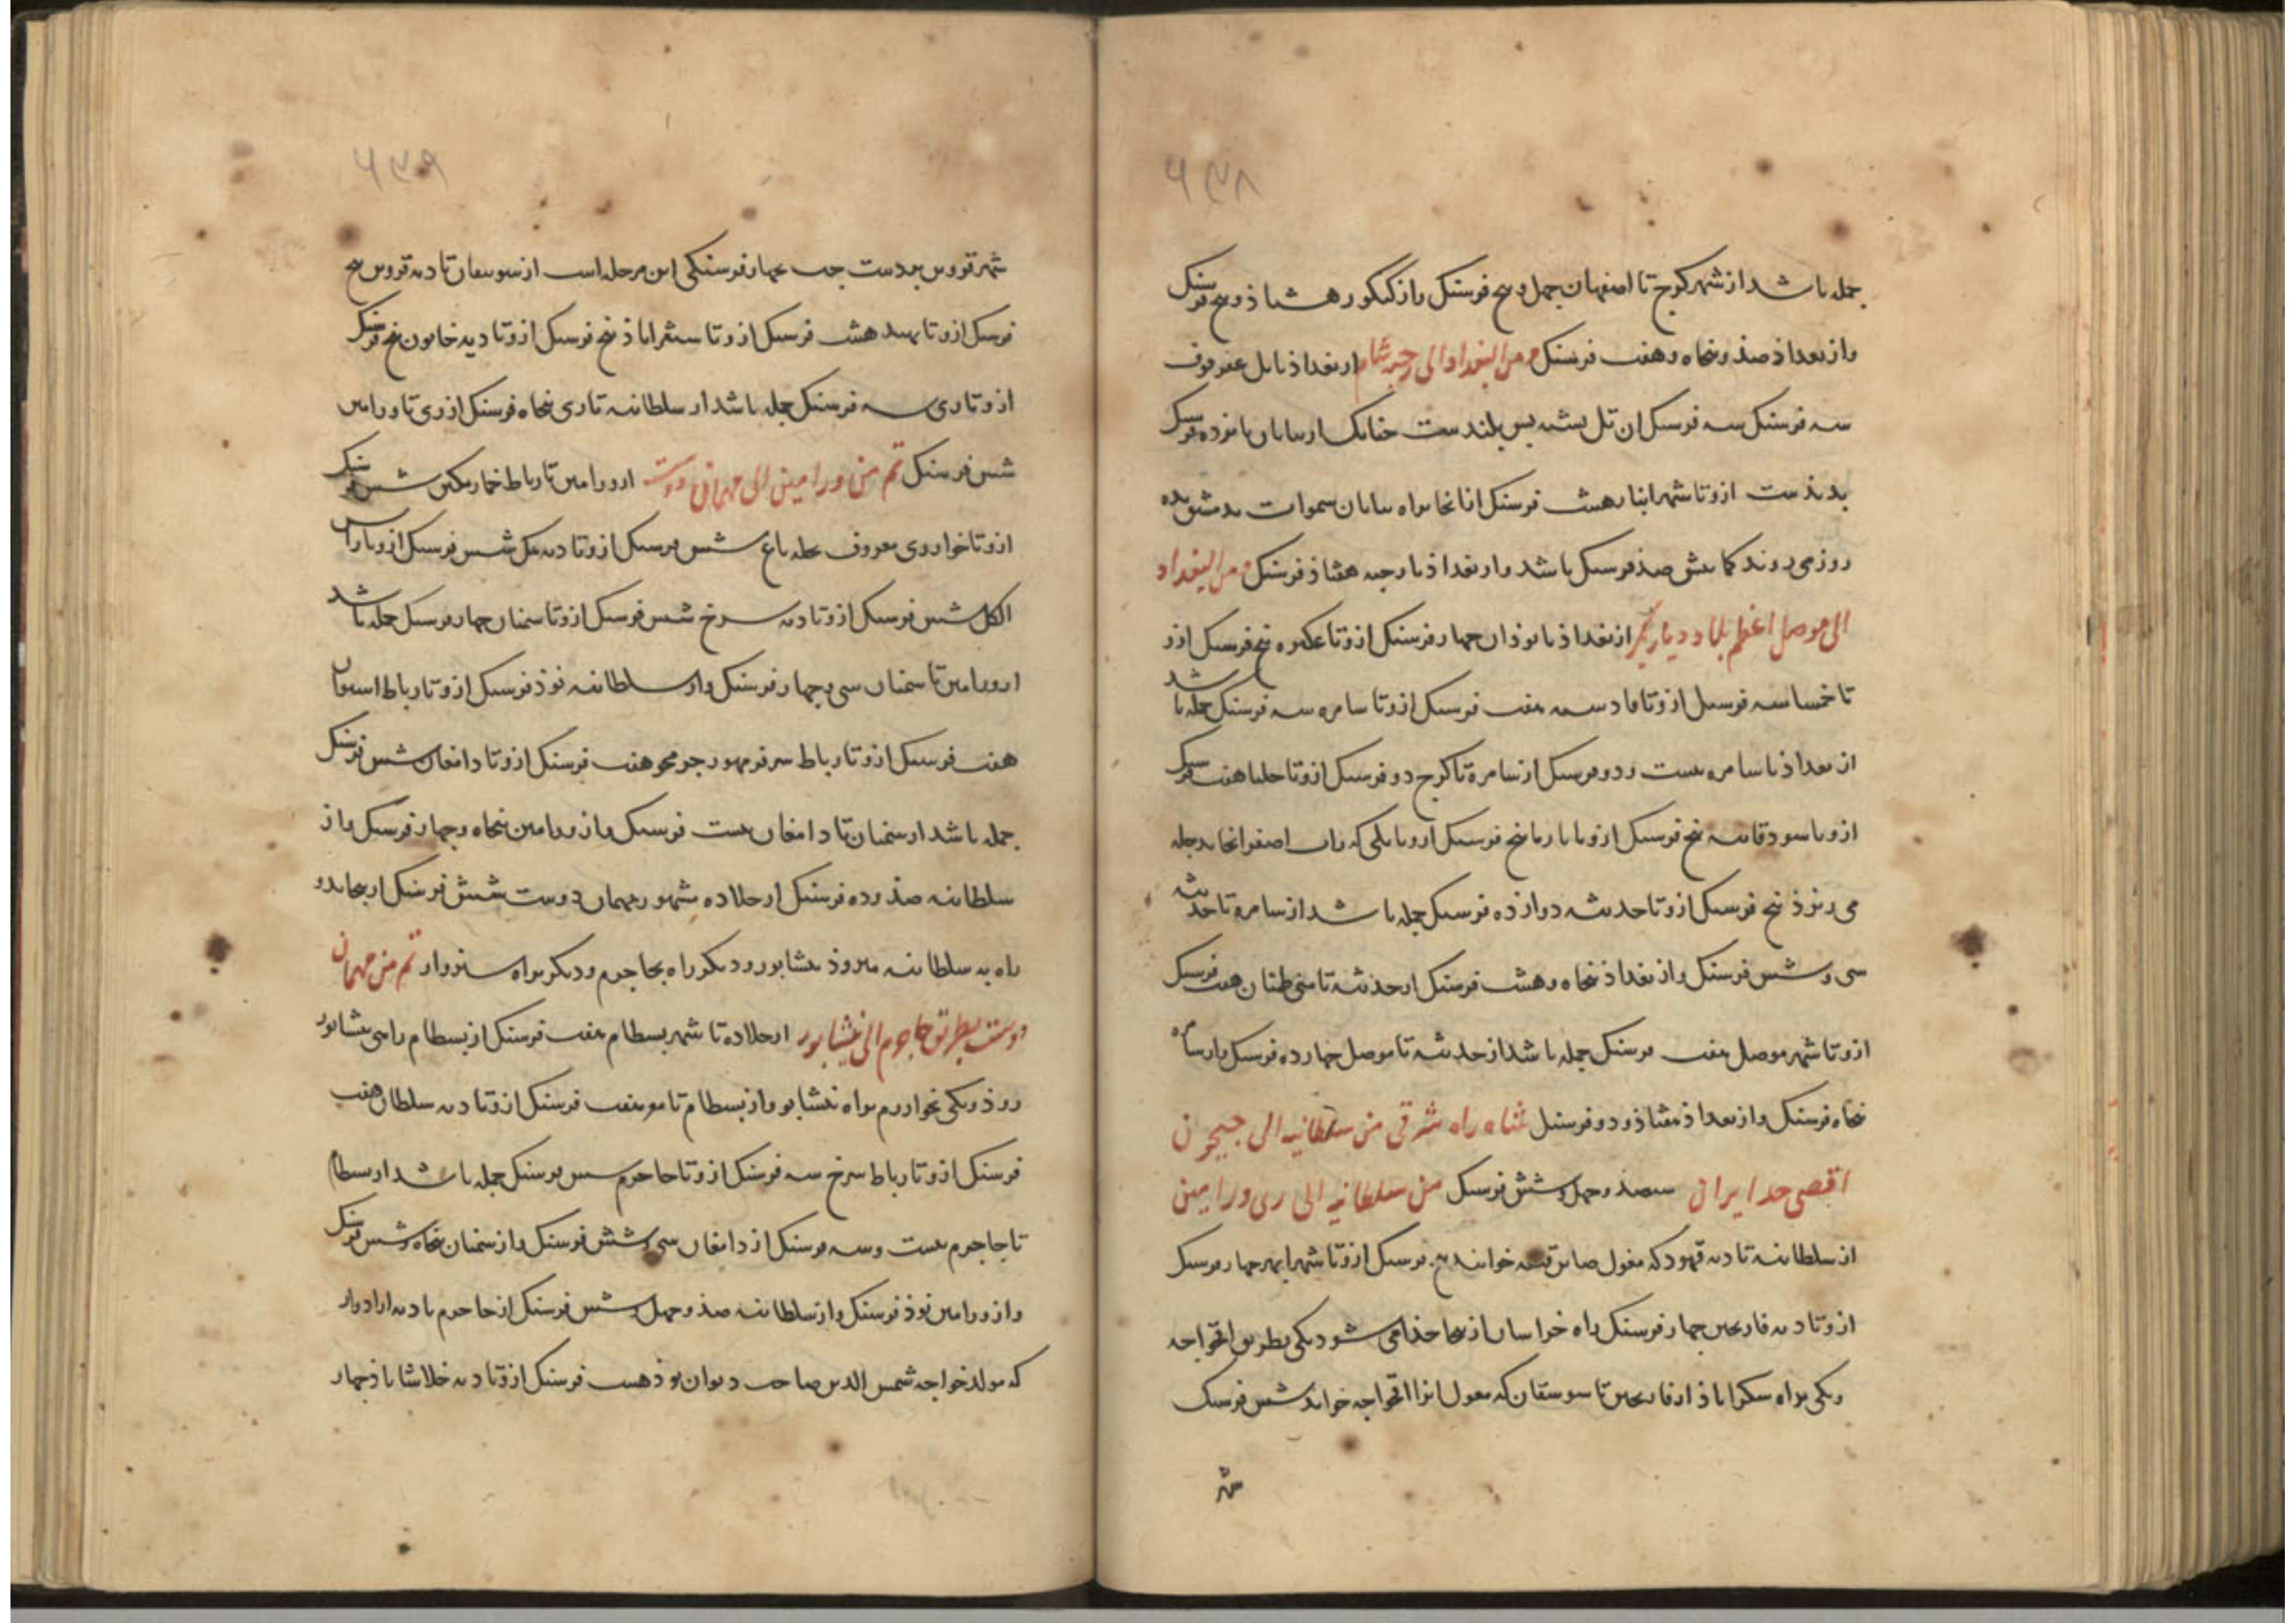 ۶۳۸
جمله باشد از شهر کرج تا اصفهان چهل و پنج فرسنک و از کنکور هشتاذ و پنج فرسنک
و از بغداذ صذ و پنجاه و هفت فرسنک و من البغداد الی رحبه شام از بغداذ تا تل عقرقوف
سه فرسنک سه فرسنک ان تل پشته بس بلندست چنانک از بیابان پانزده فرسنک
بدیذست ازو تا شهر انبار هشت فرسنک از انجا براه بیابان سموات بدمشق بده
روز می روند کمابیش صذ فرسنک باشد و از بغداذ تا رحبه هشتاذ فرسنک و من البغداد
الی موصل اعظم بلاد دیار بکر از بغداذ تا بوذان چهار فرسنک ازو تا عکبره پنج فرسنک ازو
تا خمسا سه فرسنک ازو تا قادسیه هفت فرسنک ازو تا سامره سه فرسنک جمله باشد
از بغداذ تا سامره بیست و دو فرسنک از سامره تا کرخ دو فرسنک ازو تا حلبا هفت فرسنک
ازو تا سودقانیه پنج فرسنک ازو تا بارما پنج فرسنک ازو تا پلی که زاب اصغر انجا بدجله
می ریزذ پنج فرسنک ازو تا حدیثه دوازده فرسنک جمله باشد از سامره تا حدیثه
سی و شش فرسنک و از بغداذ پنجاه و هشت فرسنک از حدیثه تا بنی طنان هفت فرسنک
ازو تا شهر موصل هفت فرسنک جمله باشد از حدیثه تا موصل چهارده فرسنک و از سامره
پنجاه فرسنک و از بغداذ هفتاذ و دو فرسنک شاه راه شرقی من سلطانیه الی جیحون
اقصی حد ایران سیصذ و چهل و شش فرسنک من سلطانیه الی ری و ورامین
از سلطانیه تا دیه قهود که مغول صاین قلعه خوانند پنج فرسنک ازو تا شهر ابهر چهار فرسنک
ازو تا دیه فارسجین چهار فرسنک راه خراسان ازینجا جذا می شود یکی بطریق اقخواجه
و یکی براه سکزاباذ از فارسجین تا سومیقان که مغول انرا اقخواجه خواند شش فرسنک
شهر
۶۳۹
شهر قزوین بردست چپ بچهار فرسنکی این مرحله است از سومیقان تا دیه قزوین پنج
فرسنک ازو تا هشت فرسنک ازو تا سنقراباذ پنج فرسنک ازو تا دیه خاتون پنج فرسنک
ازو تا ری سه فرسنک جمله باشد از سلطانیه تا ری پنجاه فرسنک از ری تا ورامین
شش فرسنک ثم من ورامین الی مهمان دوست از ورامین تا رباط خمارتکین شش فرسنک
ازو تا خوار ری معروف بمحله باغ شش فرسنک ازو تا دیه نمک شش فرسنک ازو تا راس
الکلب شش فرسنک ازو تا دیه سرخ شش فرسنک ازو تا سمنان چهار فرسنک جمله باشد
از ورامین تا سمنان سی و چهار فرسنک و از سلطانیه نوذ فرسنک ازو تا رباط اهوان
هفت فرسنک ازو تا رباط سرفرمهور هفت فرسنک ازو تا دامغان شش فرسنک
جمله باشد از سمنان تا دامغان بیست فرسنک و از ورامین پنجاه و چهار فرسنک و از
سلطانیه صذ و ده فرسنک از حلاده مشهور بمهمان دوست شش فرسنک ازینجا بدو
راه به میروذ بنشابور و دیکر راه بجاجرم و دیکر براه سبزوار ثم من مهمان
دوست بطریق جاجرم الی نیشابور از حلاده تا شهر بسطام هفت فرسنک از بسطام راهی بنشابور
روذ و یکی بخوارزم براه نیشابور از بسطام تا هفت فرسنک ازو تا دیه سلطان هفت
فرسنک ازو تا رباط سرخ سه فرسنک ازو تا جاجرم شش فرسنک جمله باشد از بسطام
تا جاجرم بیست و سه فرسنک از دامغان سی و شش فرسنک و از سمنان پنجاه و شش فرسنک
و از ورامین نوذ فرسنک و از سلطانیه صذ و چهل و شش فرسنک از جاجرم تا دیه ازادوار
که مولد خواجه شمس الدین صاحب دیوان بوذ هشت فرسنک ازو تا دیه خلاشاباذ چهار